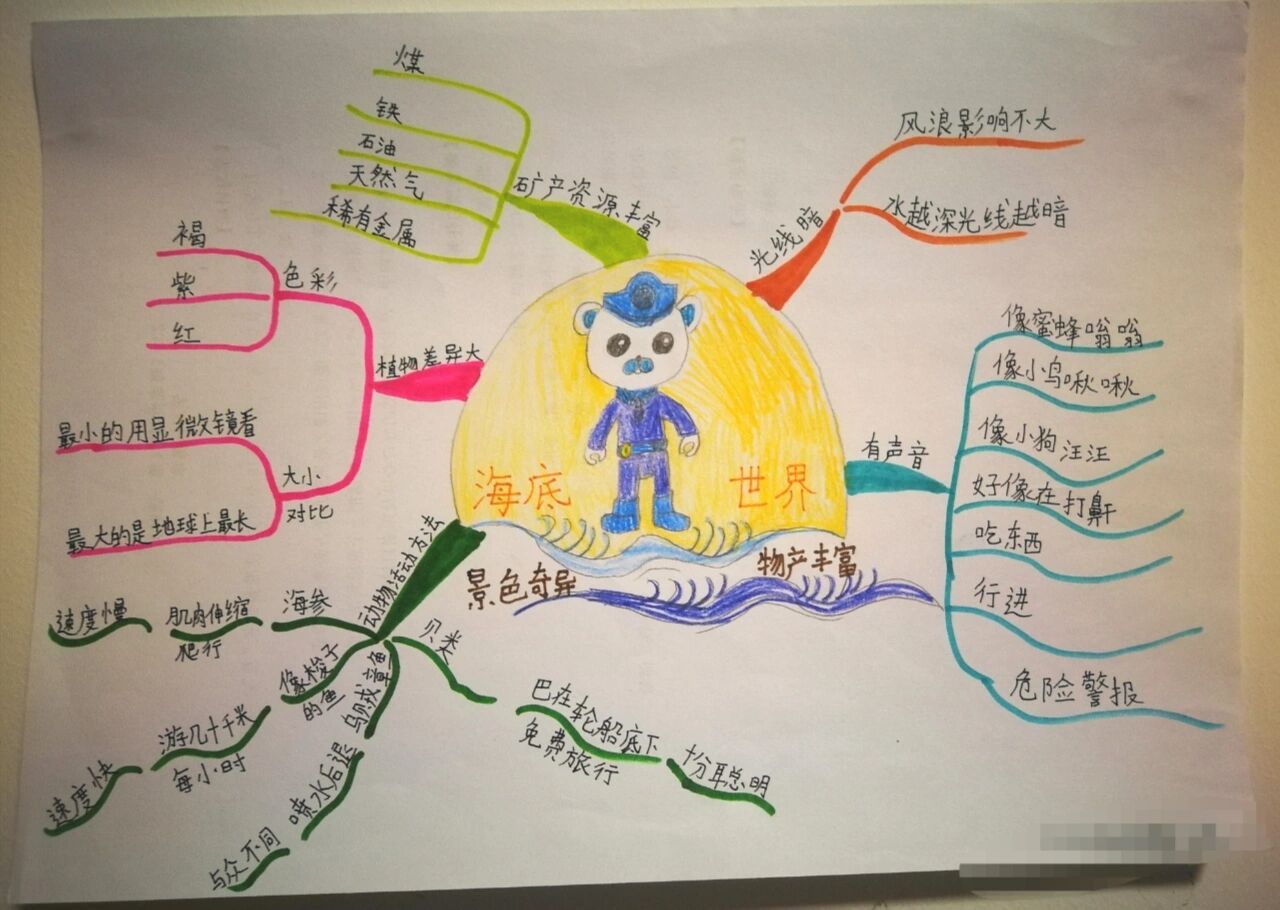 海底 世界
景色奇异
物产丰富
光线暗
风浪影响不大
水越深光线越暗
有声音
像蜜蜂嗡嗡
像小鸟啾啾
像小狗汪汪
好像在打鼾
吃东西
行进
危险警报
动物活动方法
贝类
巴在轮船底下
免费旅行
十分聪明
乌贼章鱼
喷水后退
与众不同
像梭子
的鱼
游几十千米
每小时
速度快
海参
肌肉伸缩
爬行
速度慢
植物差异大
色彩
褐
紫
红
大小
对比
最小的用显微镜看
最大的是地球上最长
矿产资源丰富
煤
铁
石油
天然气
稀有金属